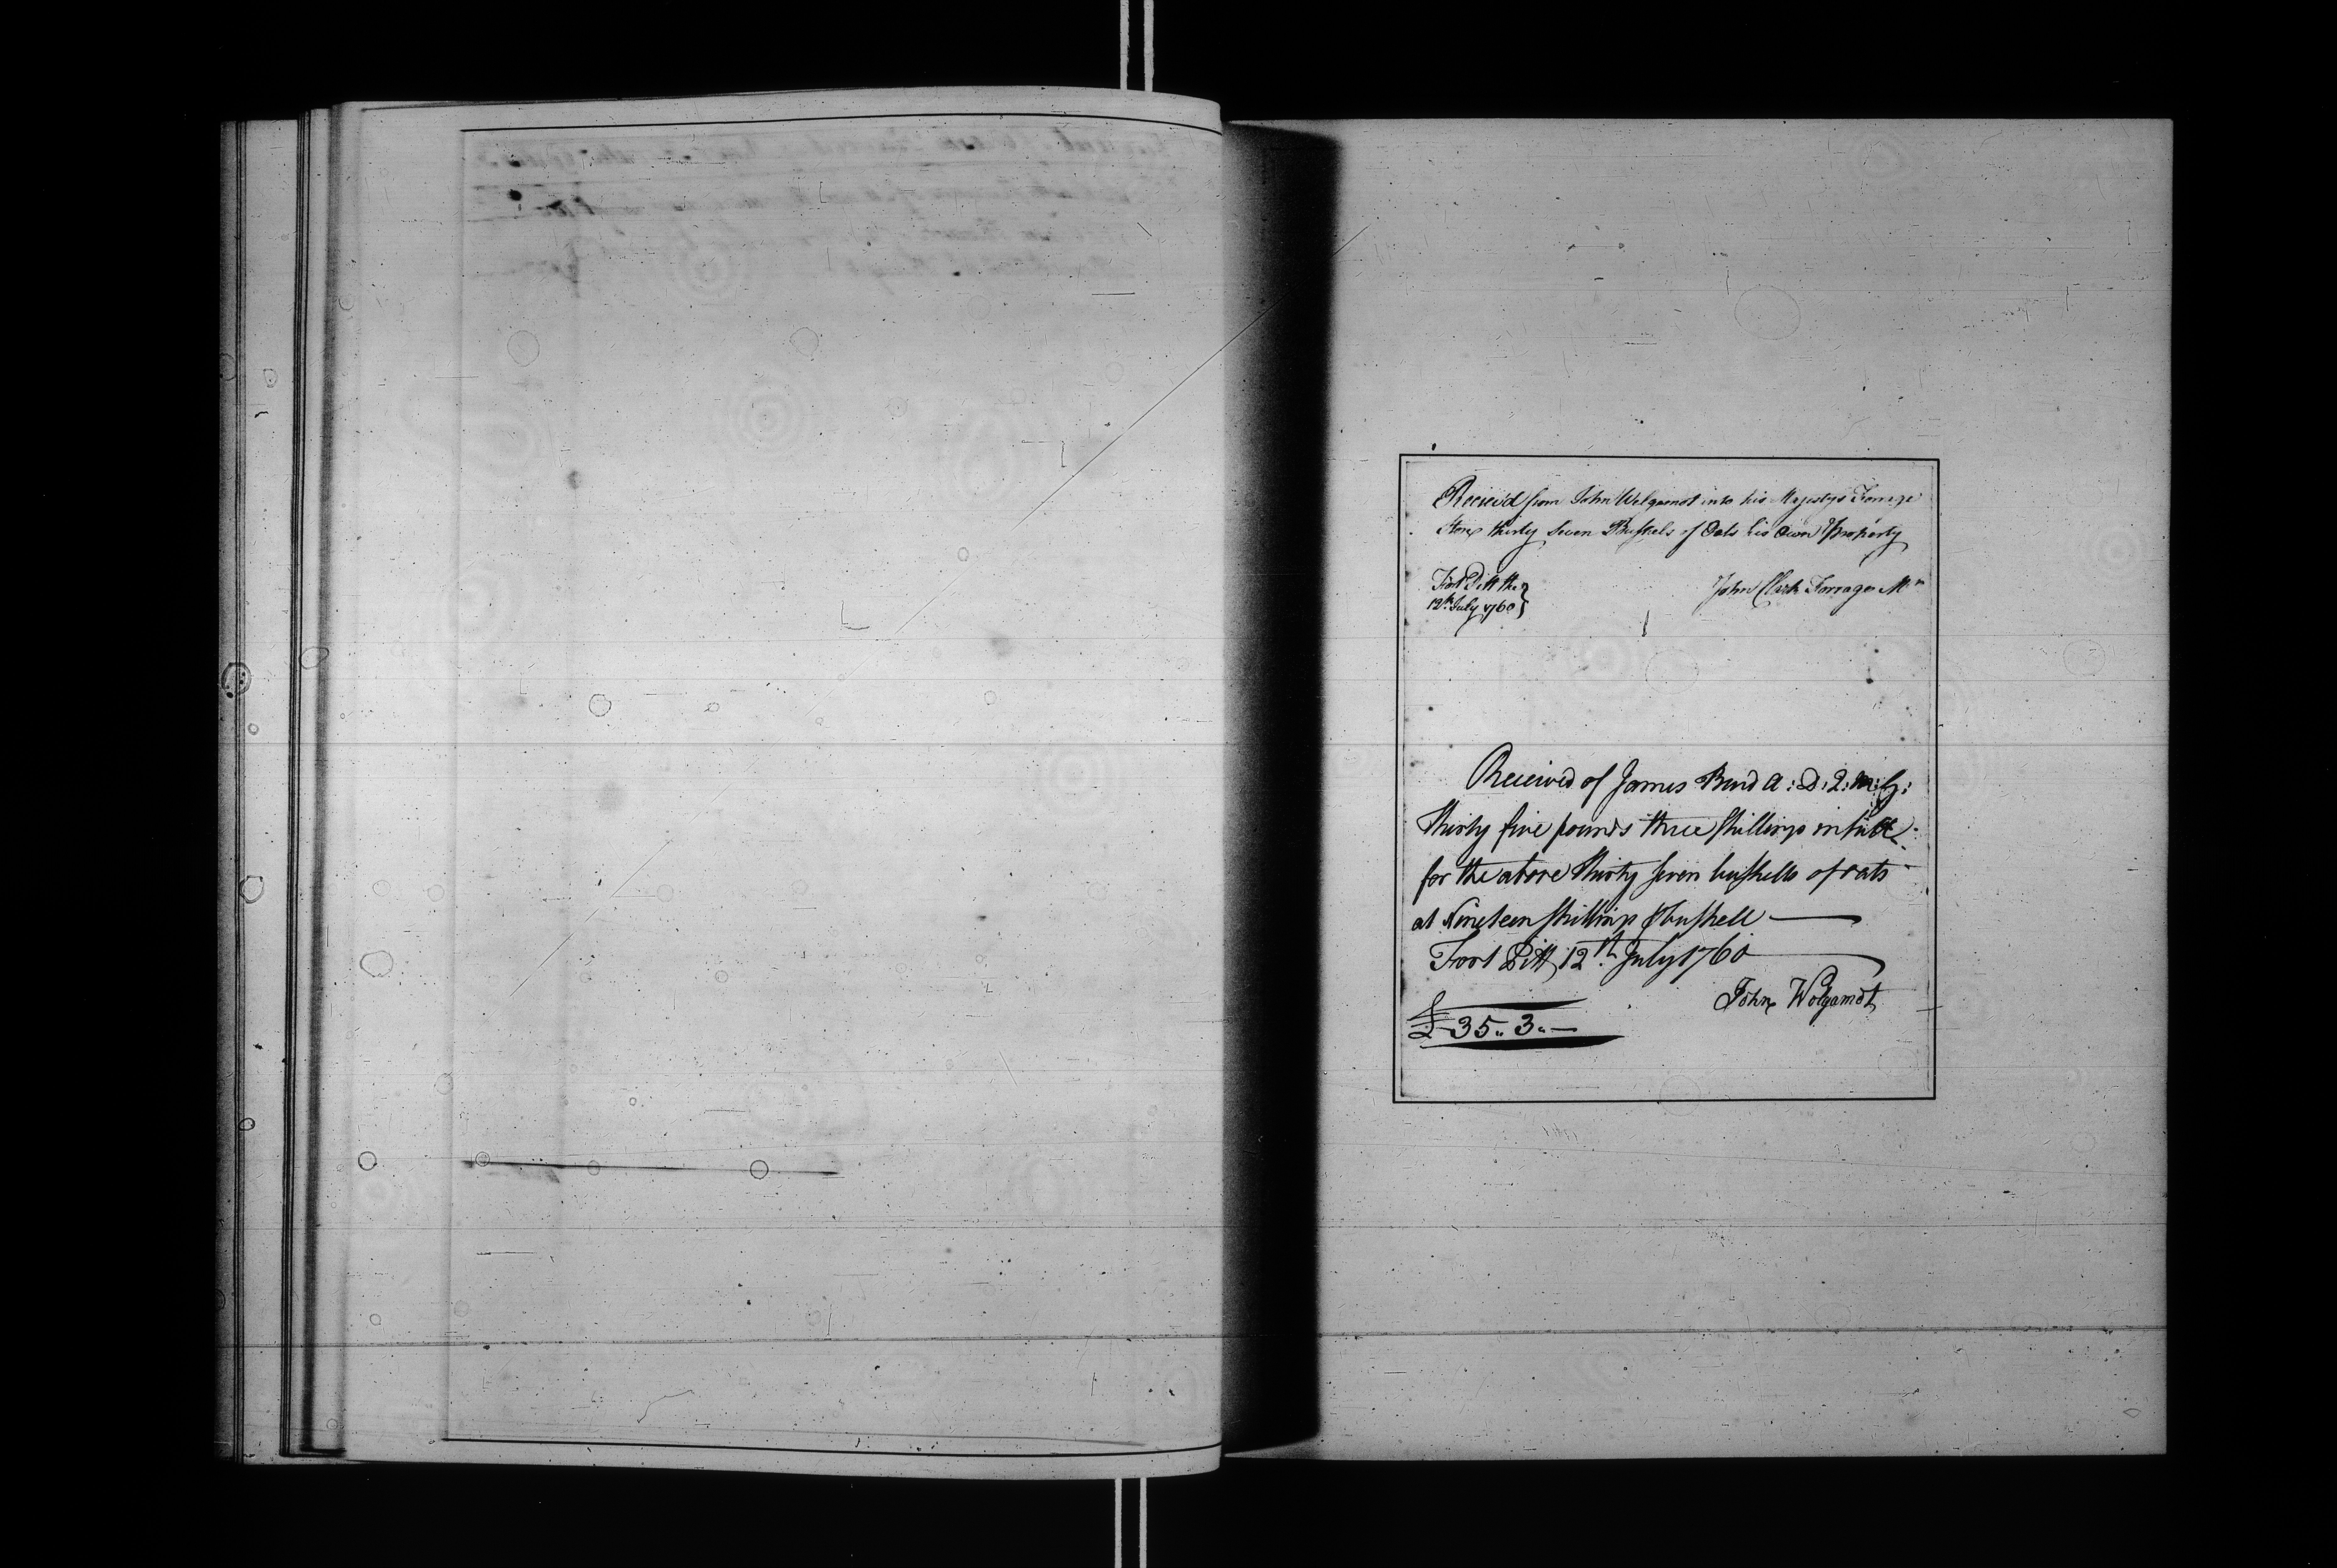 Received from John Wolgamot into his Majestys Forrage
Store thirty Seven Bushels of Oats his Own Property
Fort Pitt the
12th July 1760
John Clark Forrage Mr
Received of James Burd A: D: Q: M: G:
thirty five pounds three shillings in full
for the above thirty seven bushells of oats
at Nineteen shillings ⅌ bushell
Fort Pitt 12th July 1760
John Wolgamot
£35..3..—